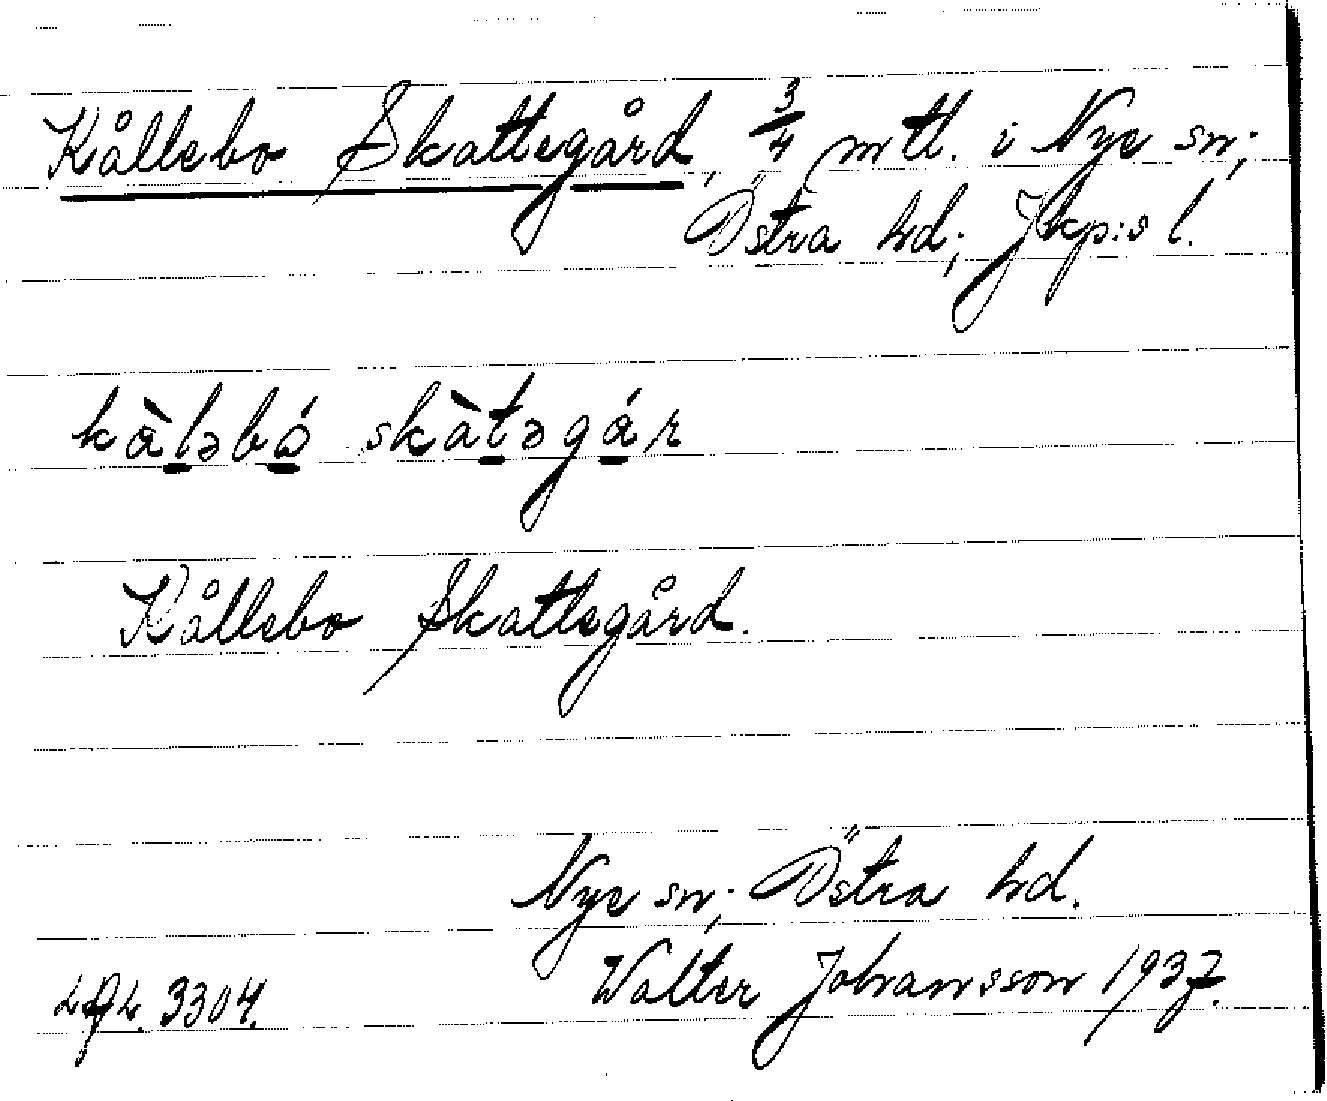 Kållebo Skattegård, 3/4 mtl. i Nye sn;
Östra hd; Jkp:s l.
kàləbó skàtəgár
Kållebo Skattegård.
Nye sn; Östra hd.
Walter Johansson 1937.
3304.